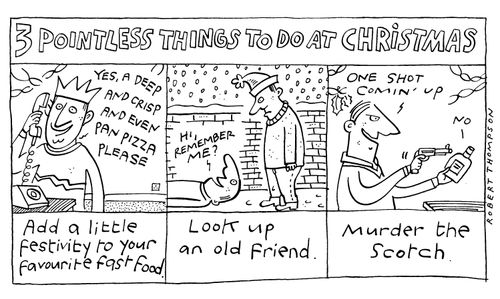 3 POINTLESS THINGS TO DO AT CHRISTMAS
YES, A DEEP
AND CRISP
AND EVEN
PAN PIZZA
PLEASE
Add a little
festivity to your
favourite fast food.
HI,
REMEMBER
ME?
Look up
an old friend.
ONE SHOT
COMIN' UP
NO
Murder the
Scotch.
ROBERT THOMPSON